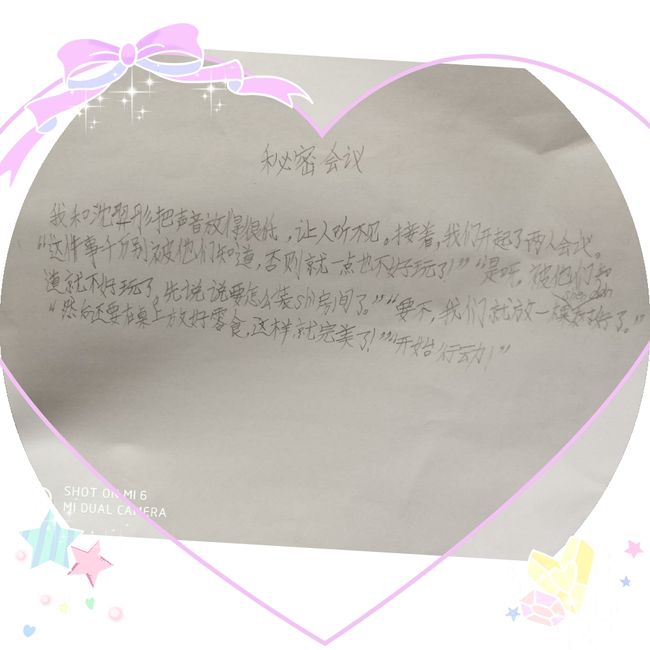 秘密会议
我和沈羿彤把声音放得很低，让人听不见。接着，我们开起了两人会议。
“这件事千万别被他们知道，否则就一点也不好玩了！”“是呀，被他们知
道就不好玩了。先说说要怎么装sh房间了。”“要不，我们就放一好了。”
“然后还要在桌上放好零食，这样就完美了！”“开始行动！”
SHOT ON MI 6
MI DUAL CAMERA